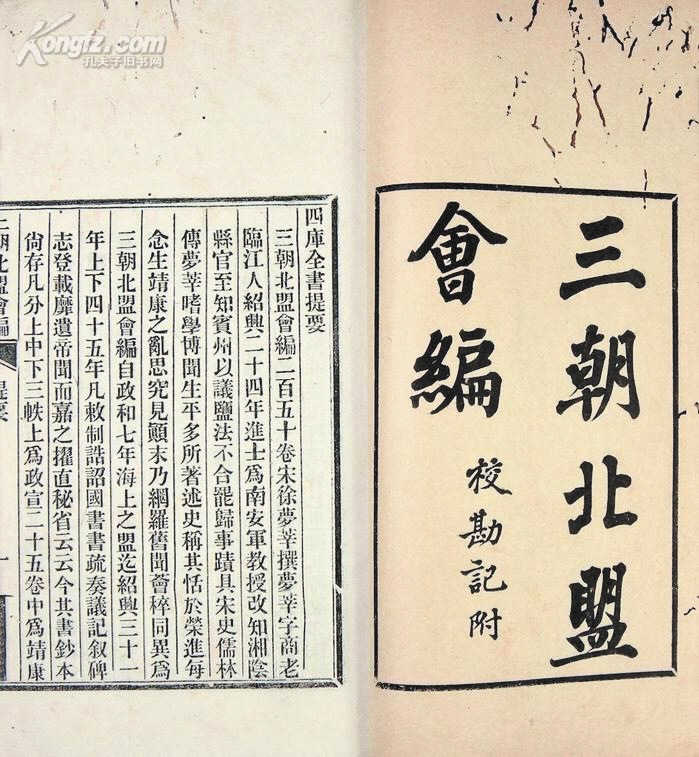 三朝北盟
會編
校勘記附
四庫全書提要
三朝北盟會編二百五十卷宋徐夢莘撰夢莘字商老
臨江人紹興二十四年進士爲南安軍教授改知湘陰
縣官至知賓州以議鹽法不合罷歸事蹟具宋史儒林
傳夢莘嗜學博聞生平多所著述史稱其恬於榮進每
念生靖康之亂思究見顚末乃綱羅舊聞薈稡同異爲
三朝北盟會編自政和七年海上之盟迄紹興三十一
年上下四十五年凡敕制誥詔國書書疏奏議記叙碑
志登載靡遺帝聞而嘉之擢直秘省云云今其書鈔本
尙存凡分上中下三帙上爲政宣二十五卷中爲靖康
三朝北盟會編
提要
一
Kongfz.com
孔夫子旧书网